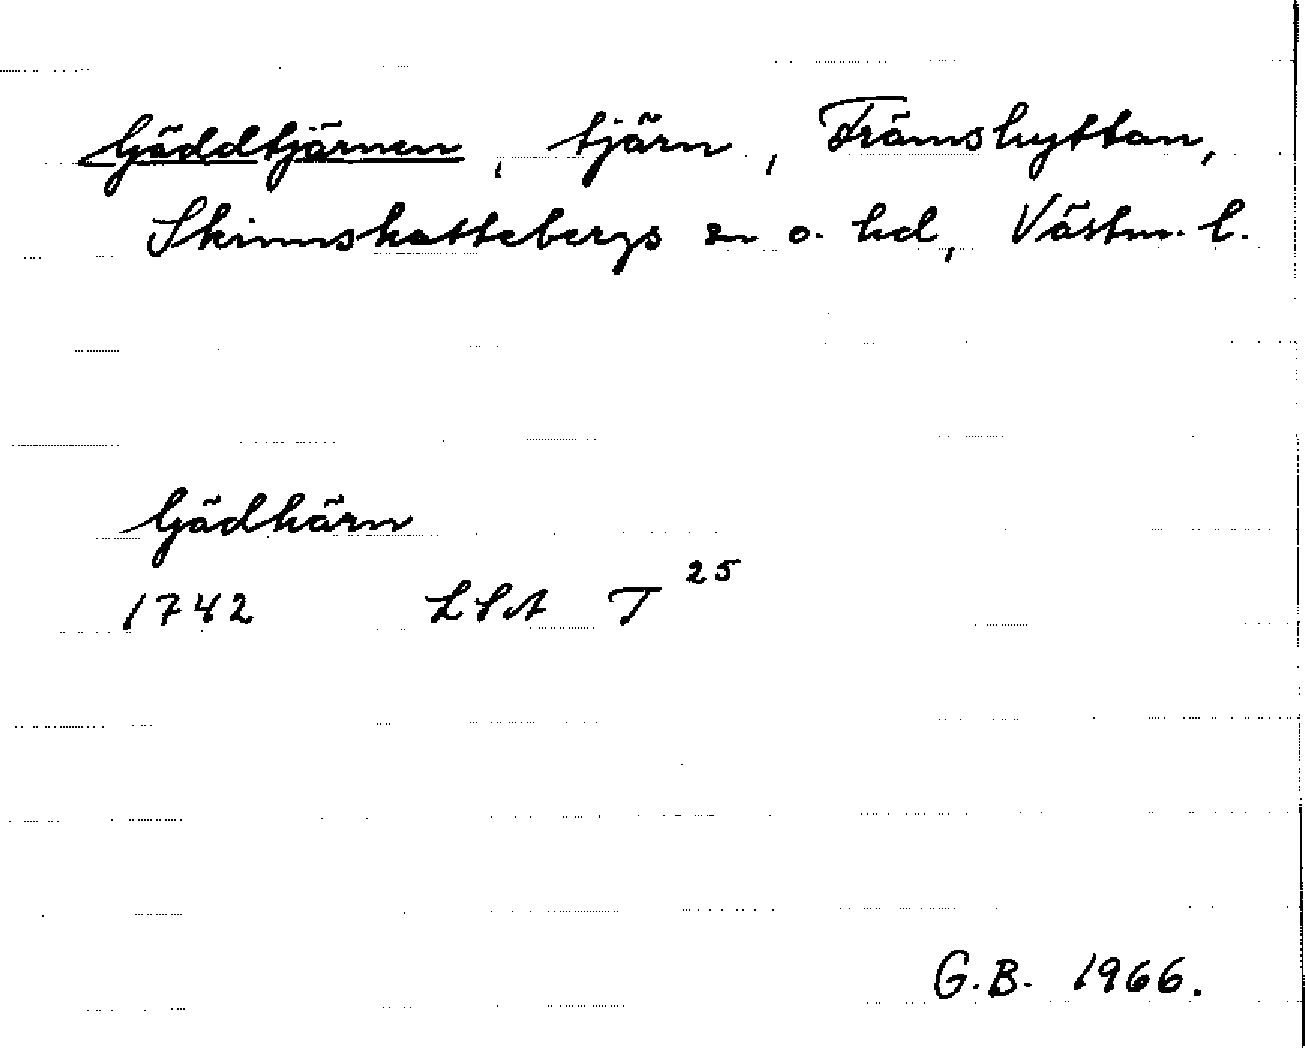 Gäddtjärnen, tjärn, Främshyttan,
Skinnskattebergs sn o. hd, Västm. l.
Gädkärn
1742 LSA T 25
G.B. 1966.